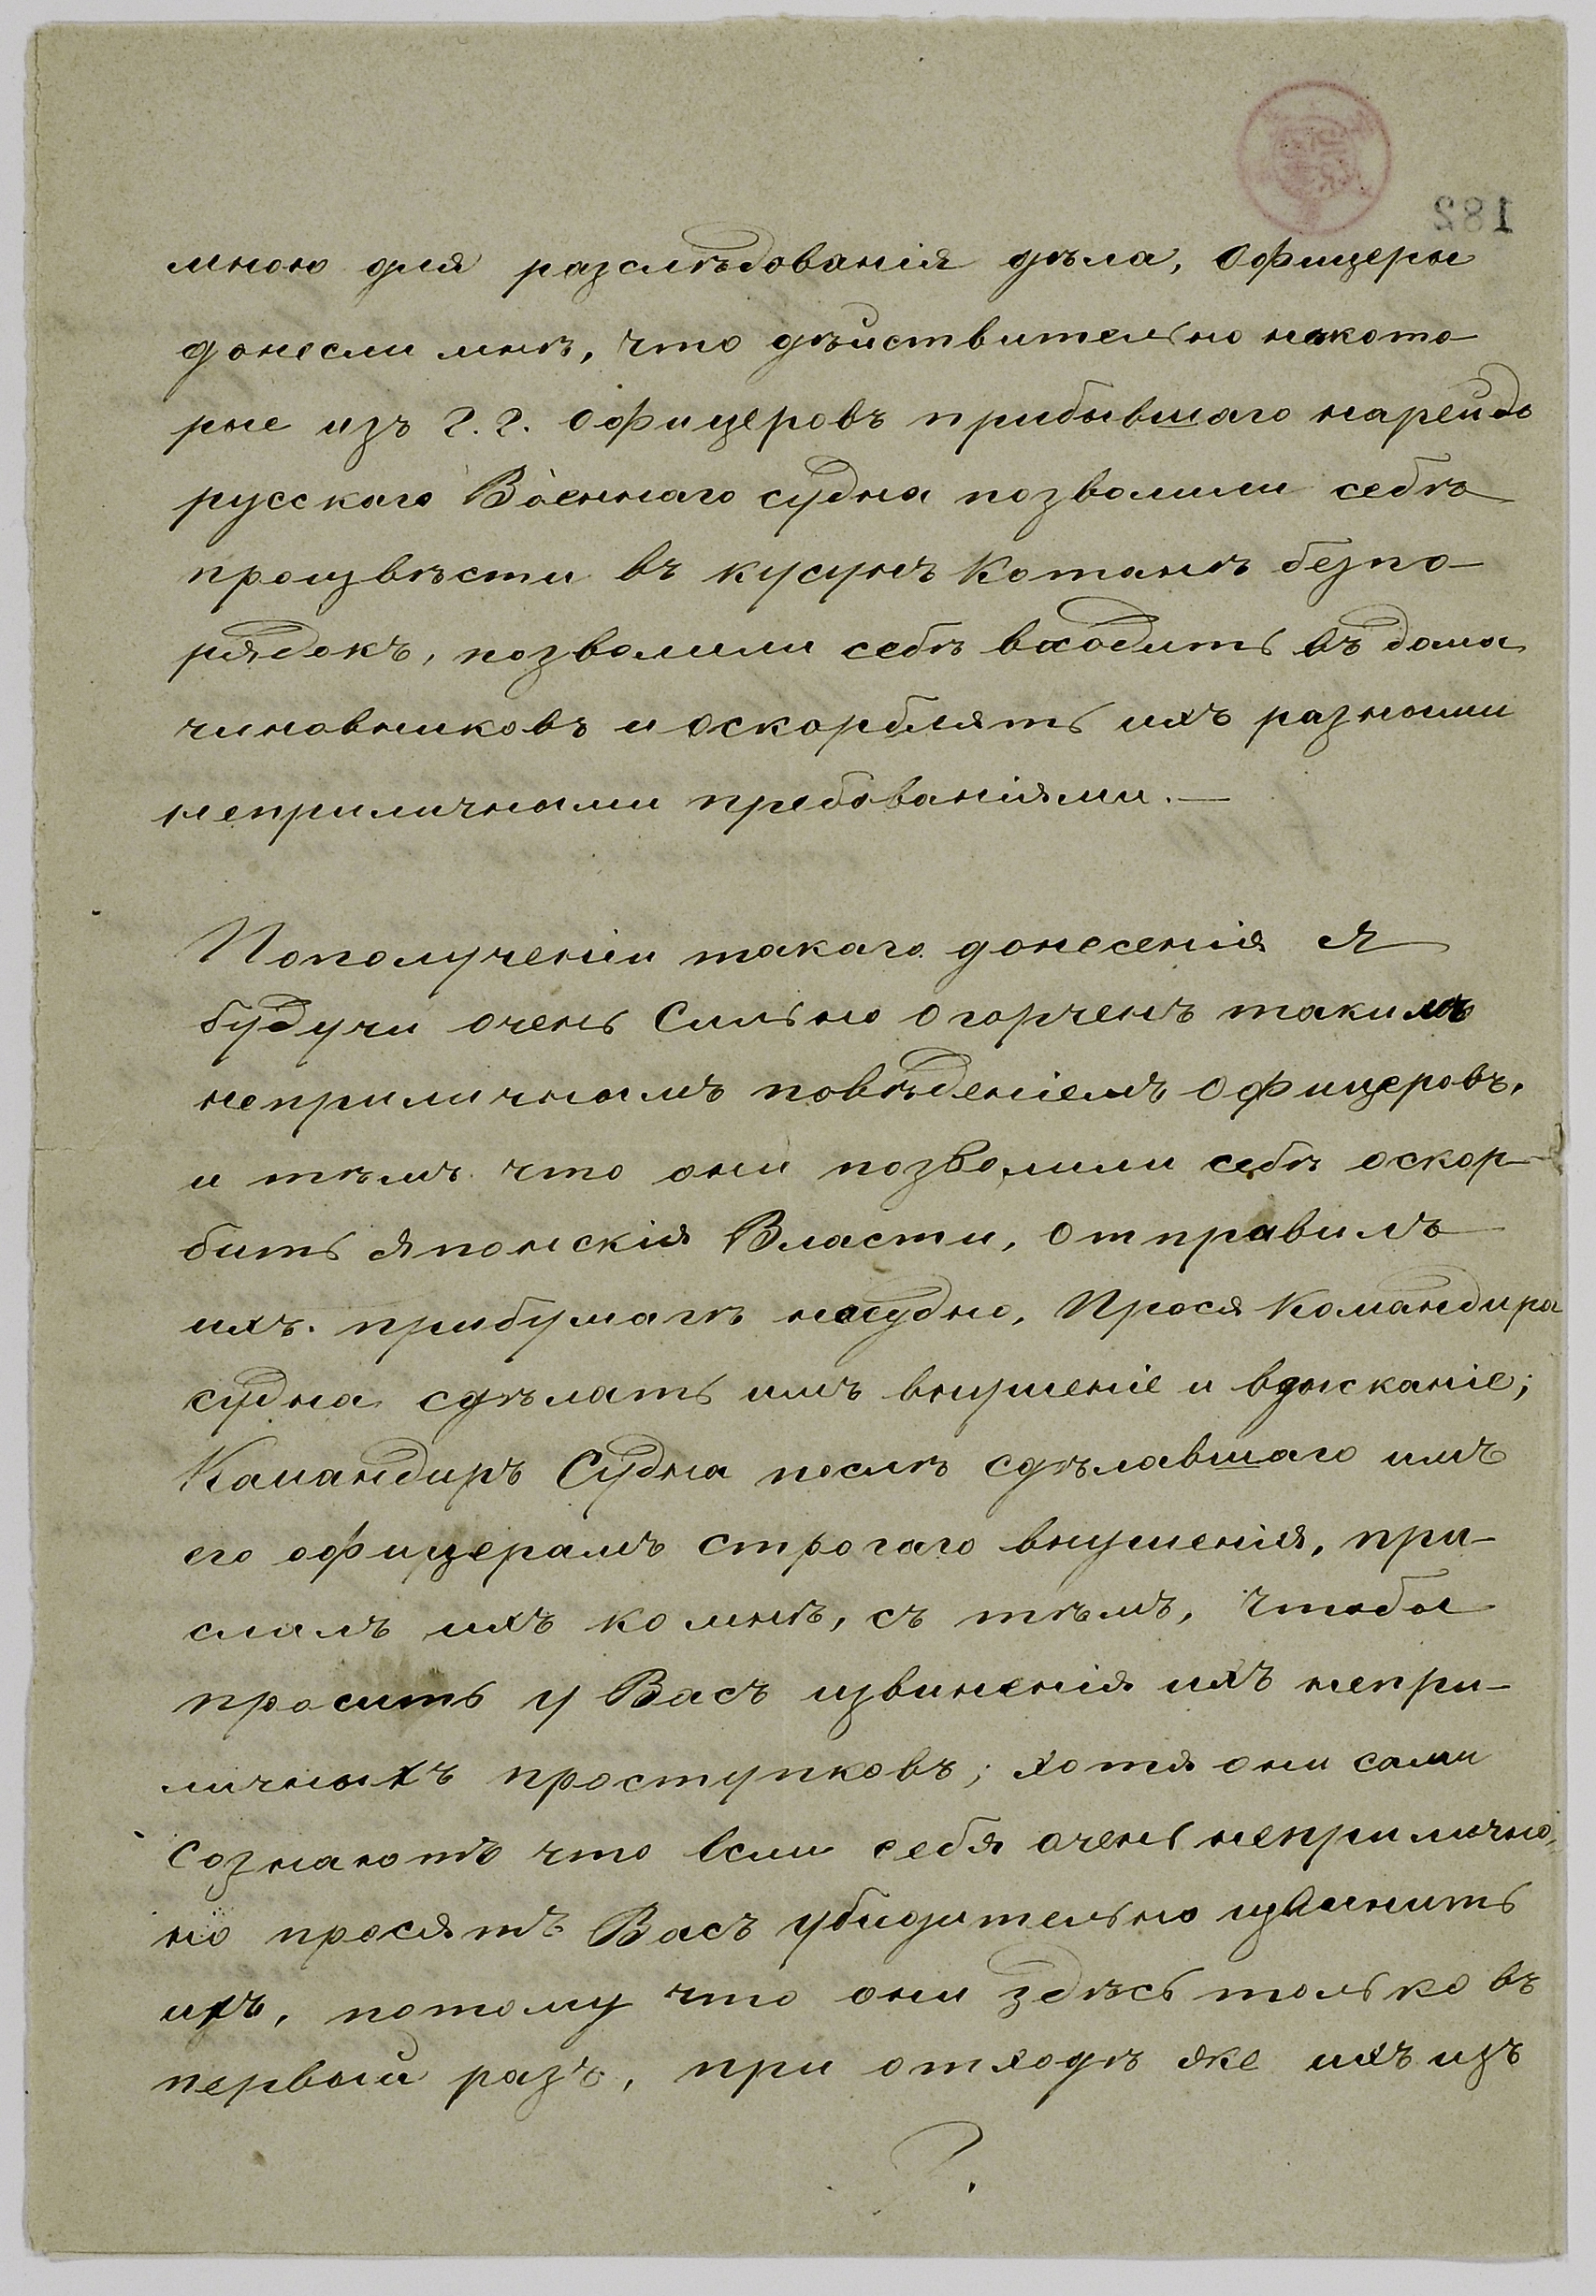 182
мною для разслѣдованія дѣла, Офицеры
донесли мнѣ, что дѣйствительно нѣкото-
рые изъ г. г. Офицеровъ прибывшаго нарейдъ
русскаго Военнаго судна позволили себѣ
произвѣсти въ кусунъ Котанѣ безпо-
рядокъ, позволили себѣ входить въ дома
чиновниковъ и оскорблять ихъ разными
неприличными требованіями.—
Пополученіи такаго донесенія Я
будучи очень Сильно огорченъ такимъ
неприличнымъ повѣденіемъ Офицеровъ,
и тѣмъ что они позволили себѣ оскор-
бить Японскія Власти, отправилъ
ихъ прибумагѣ насудно, Прося Командира
судна сдѣлать имъ внушеніе и взысканіе;
Командиръ Судна послѣ сдѣлавшаго имъ
его офицерамъ строгаго внушенія, при-
слалъ ихъ ко мнѣ, съ тѣмъ, чтобы
просить у Васъ извиненія ихъ непри-
личныхъ проступковъ; хотя они сами
сознаютъ что вели себя очень неприлично,
но просятъ Васъ убидительно извинить
ихъ, потому что они здѣсь только въ
первый разъ, при отходѣ же ихъ изъ